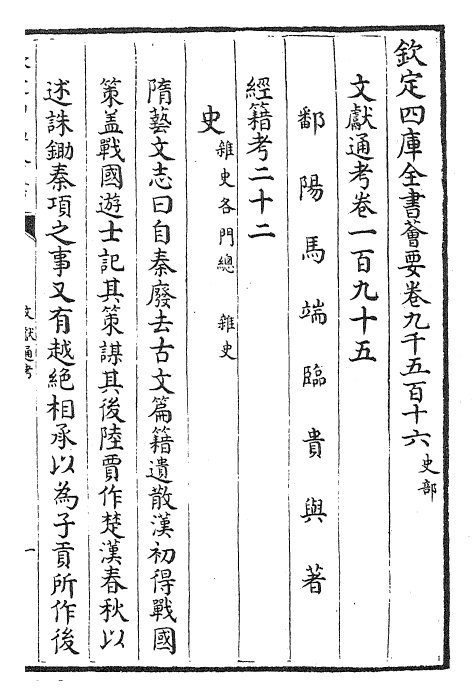 欽定四庫全書薈要卷九千五百十六史部
文獻通考卷一百九十五
鄱陽馬端臨貴與著
經籍考二十二
史雜史各門總 雜史
隋藝文志曰自秦廢去古文篇籍遺散漢初得戰國
策盖戰國遊士記其策謀其後陸賈作楚漢春秋以
述誅鋤秦項之事又有越絶相承以為子貢所作後
文獻通考 一